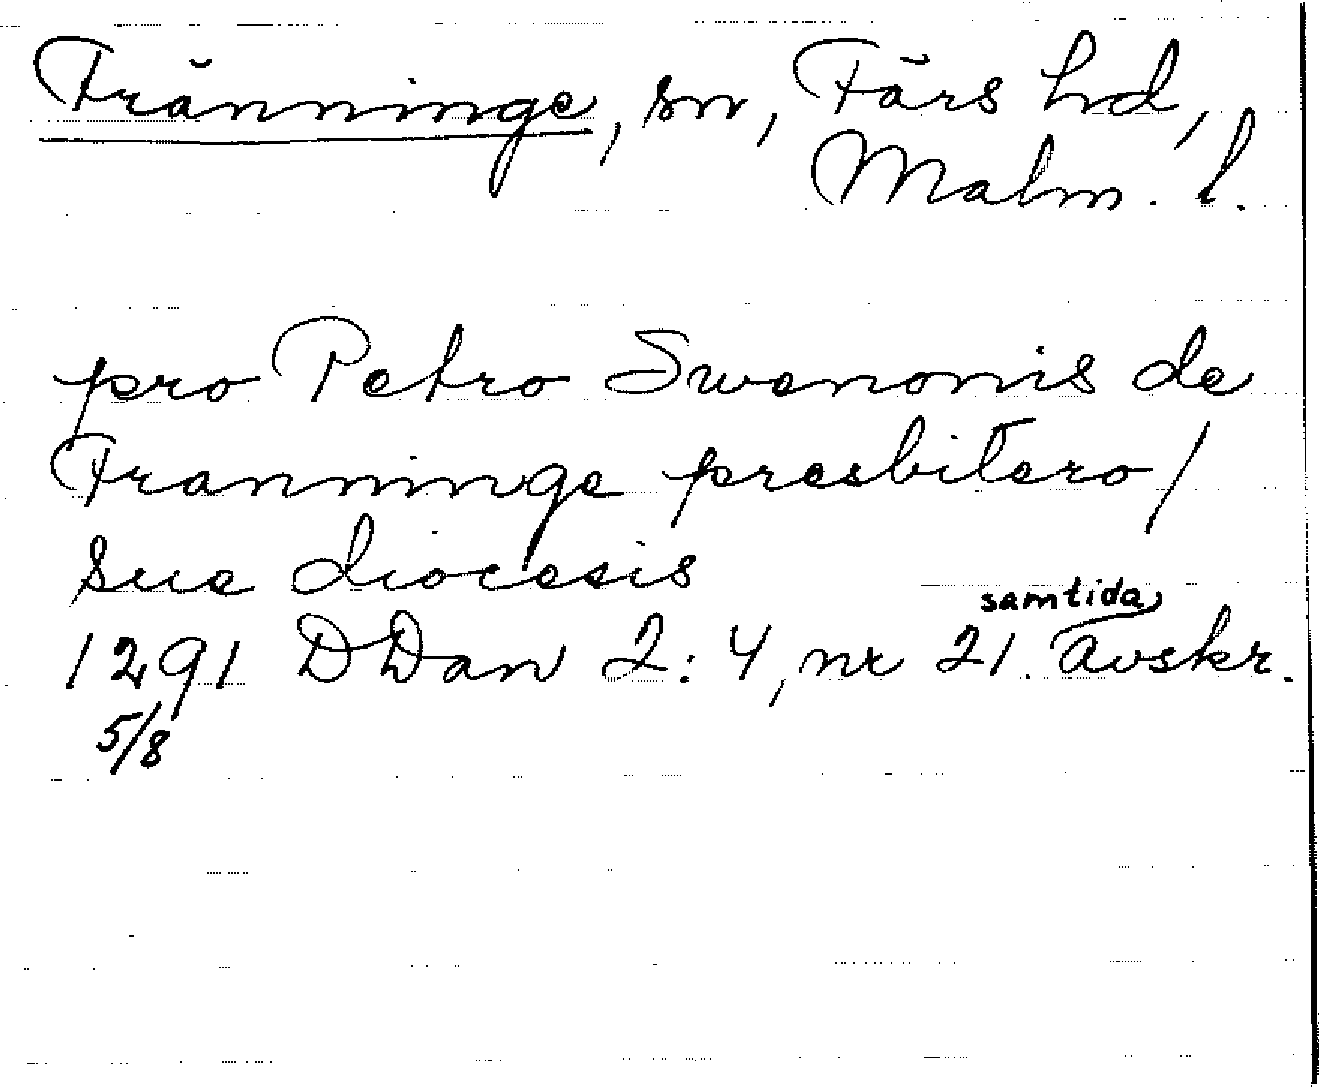 Fränninge, sn, Färs hd,
Malm. l.
pro Petro Swenonis de
Franninge presbitero /
sue diocesis
samtida
1291 DDan 2:4, nr 21. avskr.
5/8